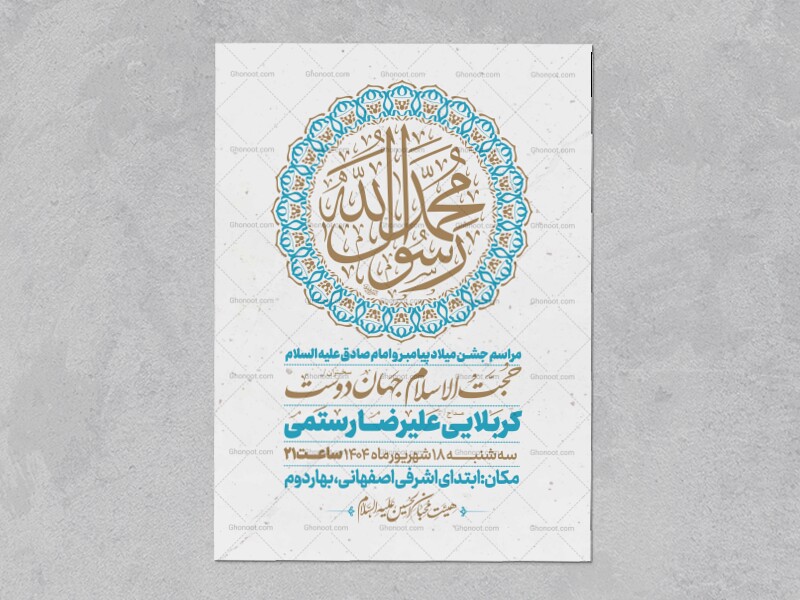 محمد رسول الله
مراسم جشن میلاد پیامبر و امام صادق علیه السلام
حجت الاسلام جهان دوست
کربلایی علیرضا رستمی
سه‌شنبه ۱۸ شهریور ماه ۱۴۰۴ ساعت ۲۱
مکان: ابتدای اشرفی اصفهانی، بهار دوم
هیئت محبان الحسین علیه السلام
Ghonoot.com